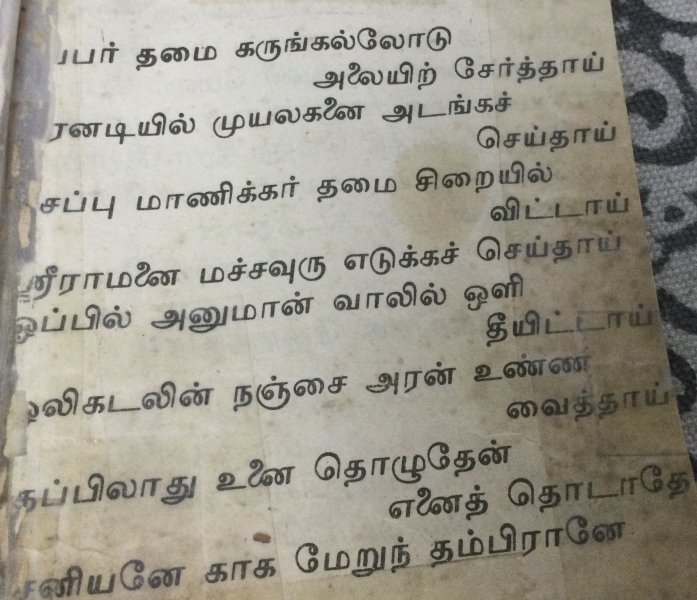 தமை கருங்கல்லோடு
அலையிற் சேர்த்தாய்
முயலகனை அடங்கச்
செய்தாய்
மாணிக்கர் தமை சிறையில்
விட்டாய்
ஸ்ரீராமனை மச்சவுரு எடுக்கச் செய்தாய்
ஒப்பில் அனுமான் வாலில் ஒளி
தீயிட்டாய்
ஒலிகடலின் நஞ்சை அரன் உண்ண
வைத்தாய்
தப்பிலாது உனை தொழுதேன்
எனைத் தொடாதே
சனியனே காக மேறுந் தம்பிரானே